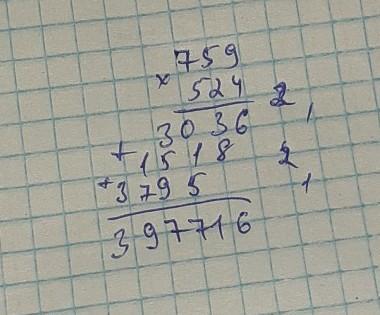 759
× 524
3036 2,
+ 1518 2
+ 3795 1
397716